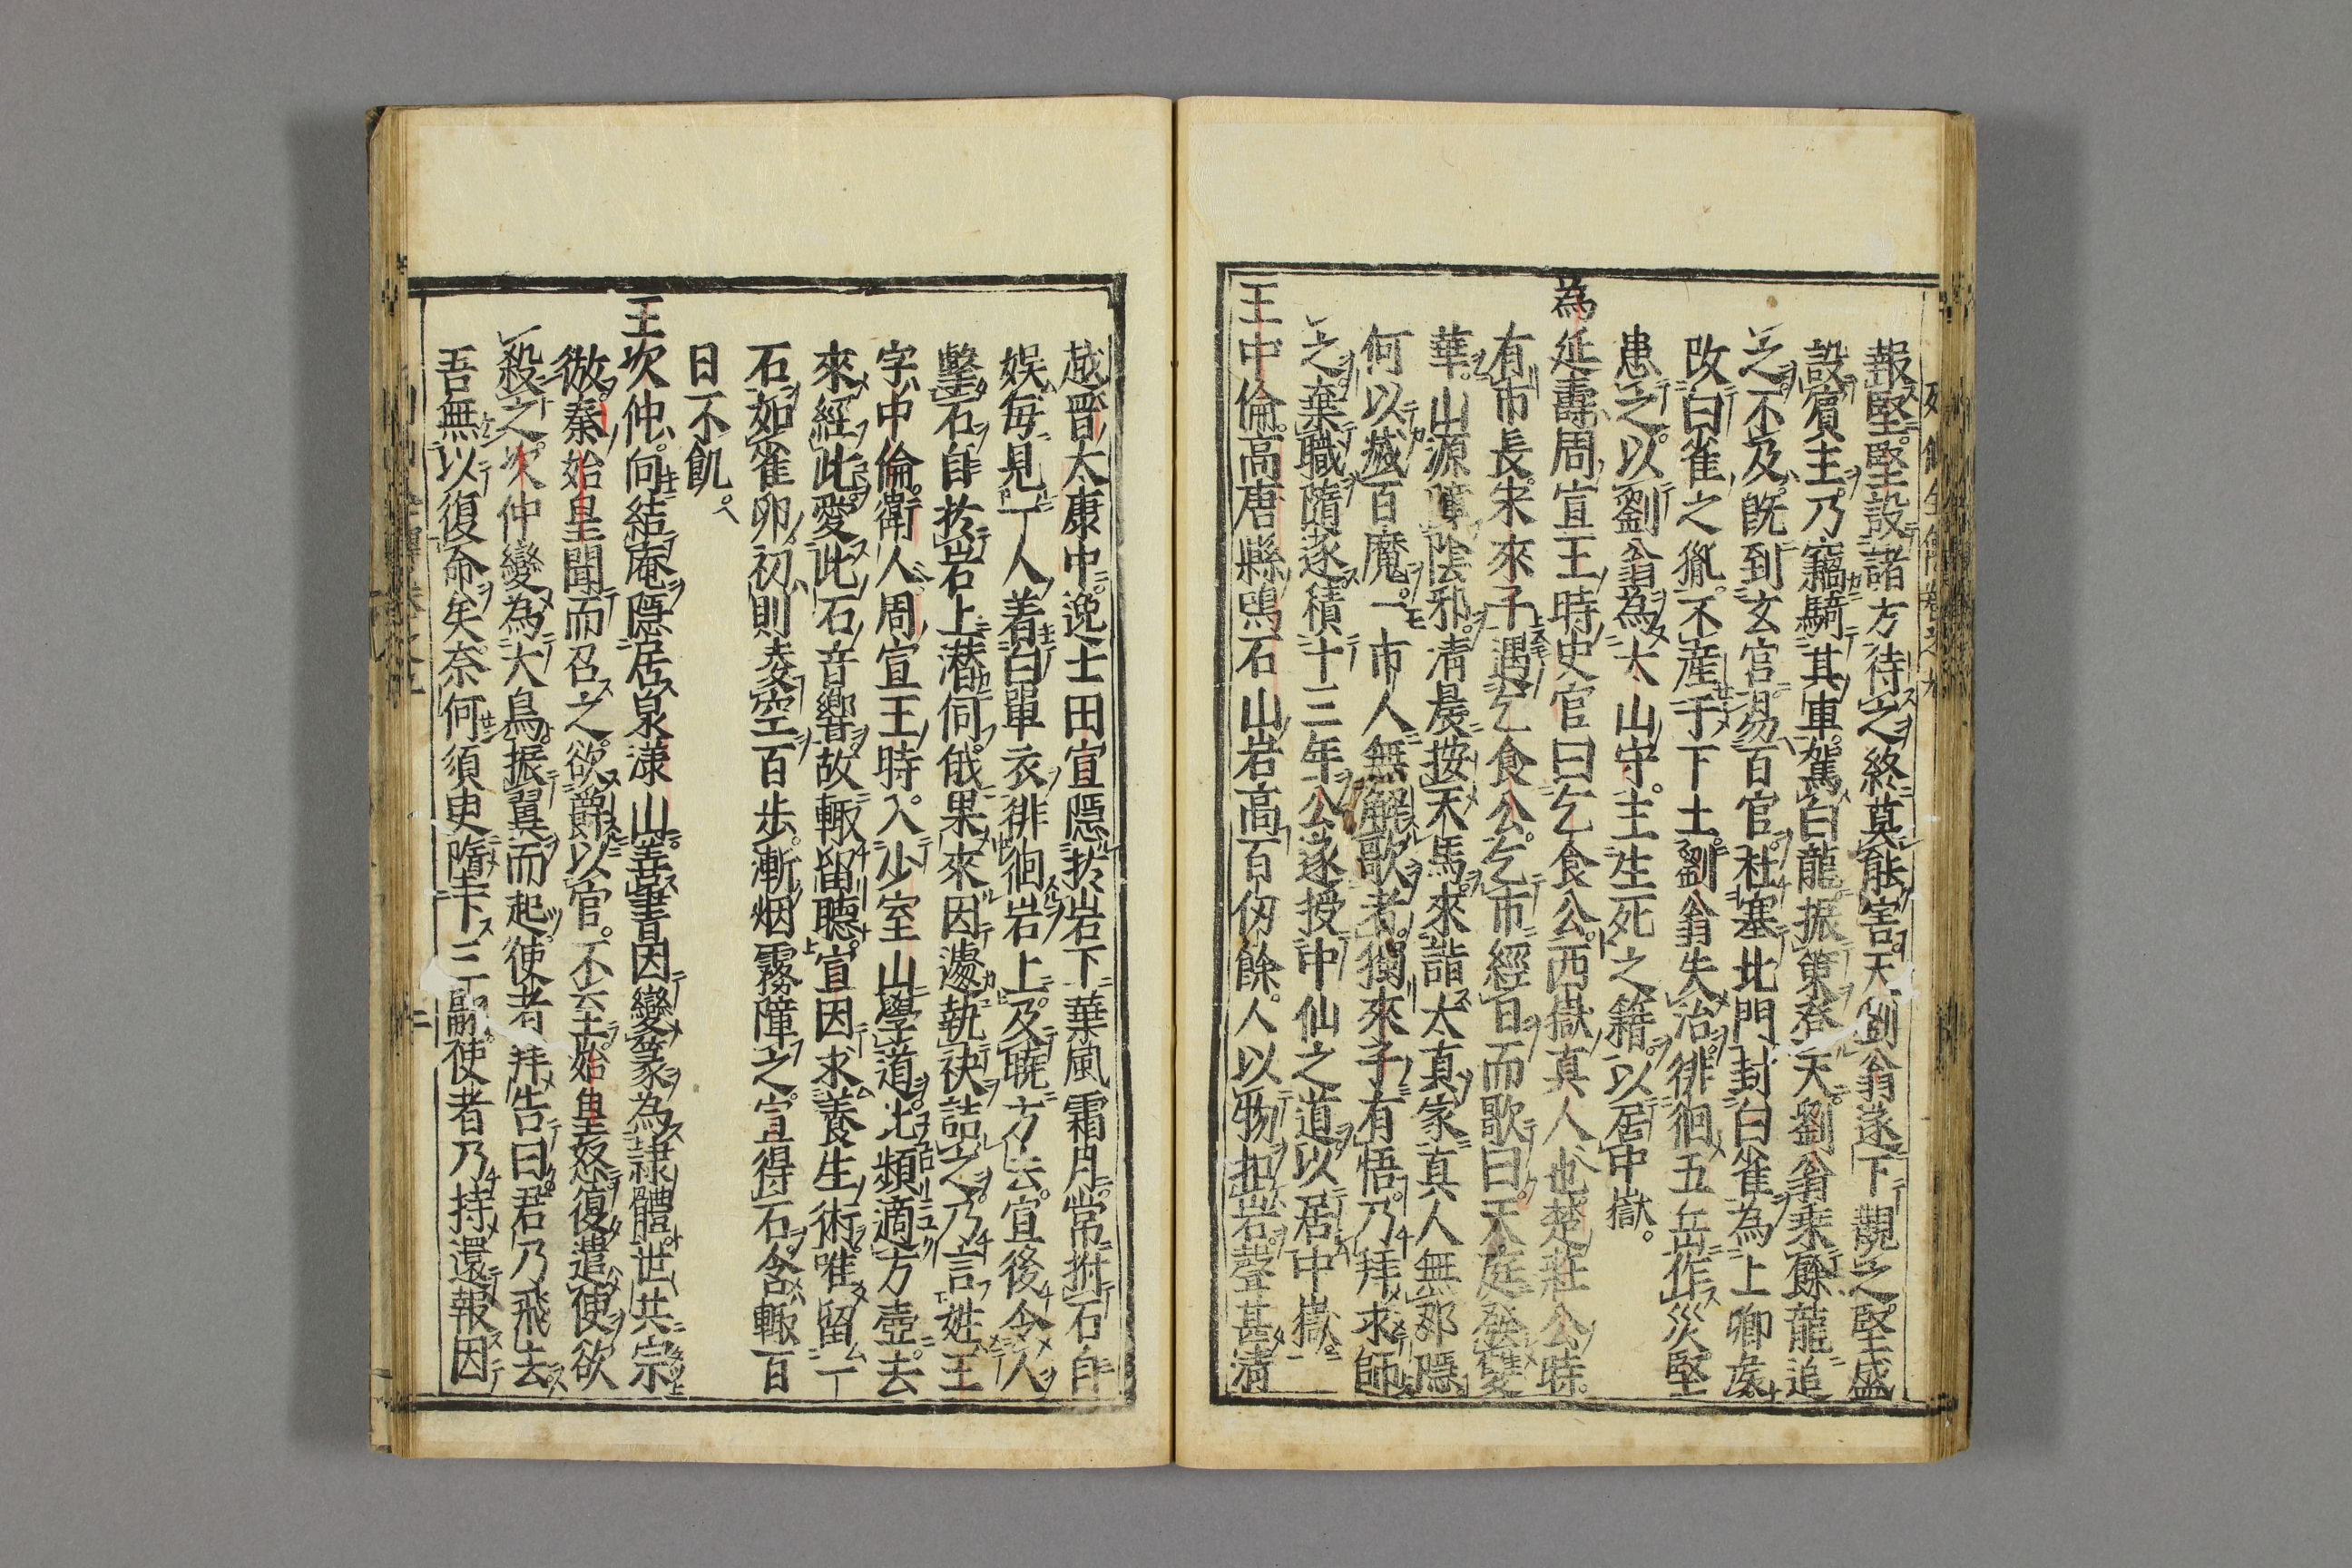 報堅堅設諸方待之終莫能害天劉翁遂下觀之堅盛
設賓主乃竊騎其車駕白龍振策登天劉翁乗餘龍追
之不及既到玄宮易百官杜塞北門封白雀為上卿矦
改白雀之胤不産于下土劉翁失治徘徊五岳作災堅
患之以劉翁為太山守主生死之籍以居中嶽
為延壽周宣王時史官曰乞食公西嶽真人也楚莊公時
有市長宋來子遇乞食公乞市經百而歌曰天庭發雙
華山源障陰邪清晨按天馬來詣太真家真人無那隱
何以滅百魔一市人無解歌者獨來子有悟乃拜求師
之棄職隨遂積十三年公遂授中仙之道以居中嶽
王中倫高唐縣鳴石山岩高百仭餘人以物扣岩聲甚清
越晋太康中逸士田宣隱於岩下葉風霜月常拊石自
娯毎見一人着白單衣徘徊岩上及曉方去宣後令人
鑿石自於岩上潜伺俄果來因遽執袂詰之乃言姓王
字中倫衛人周宣王時入少室山學道比頻適方壺去
來經此愛此石音響故輙留聽宣因求養生術唯留一
石如雀卵初則凌空百歩漸烟霧障之宣得石含輙百
日不飢
王次仲向結庵隱居泉漾山善書因變篆為隷體世共宗
倣秦始皇聞而召之欲爵以官不至始皇怒復遣使欲
殺之次仲變為大鳥振翼而起使者拜告曰君乃飛去
吾無以復命矣奈何須臾墮下三翮使者乃持還報因